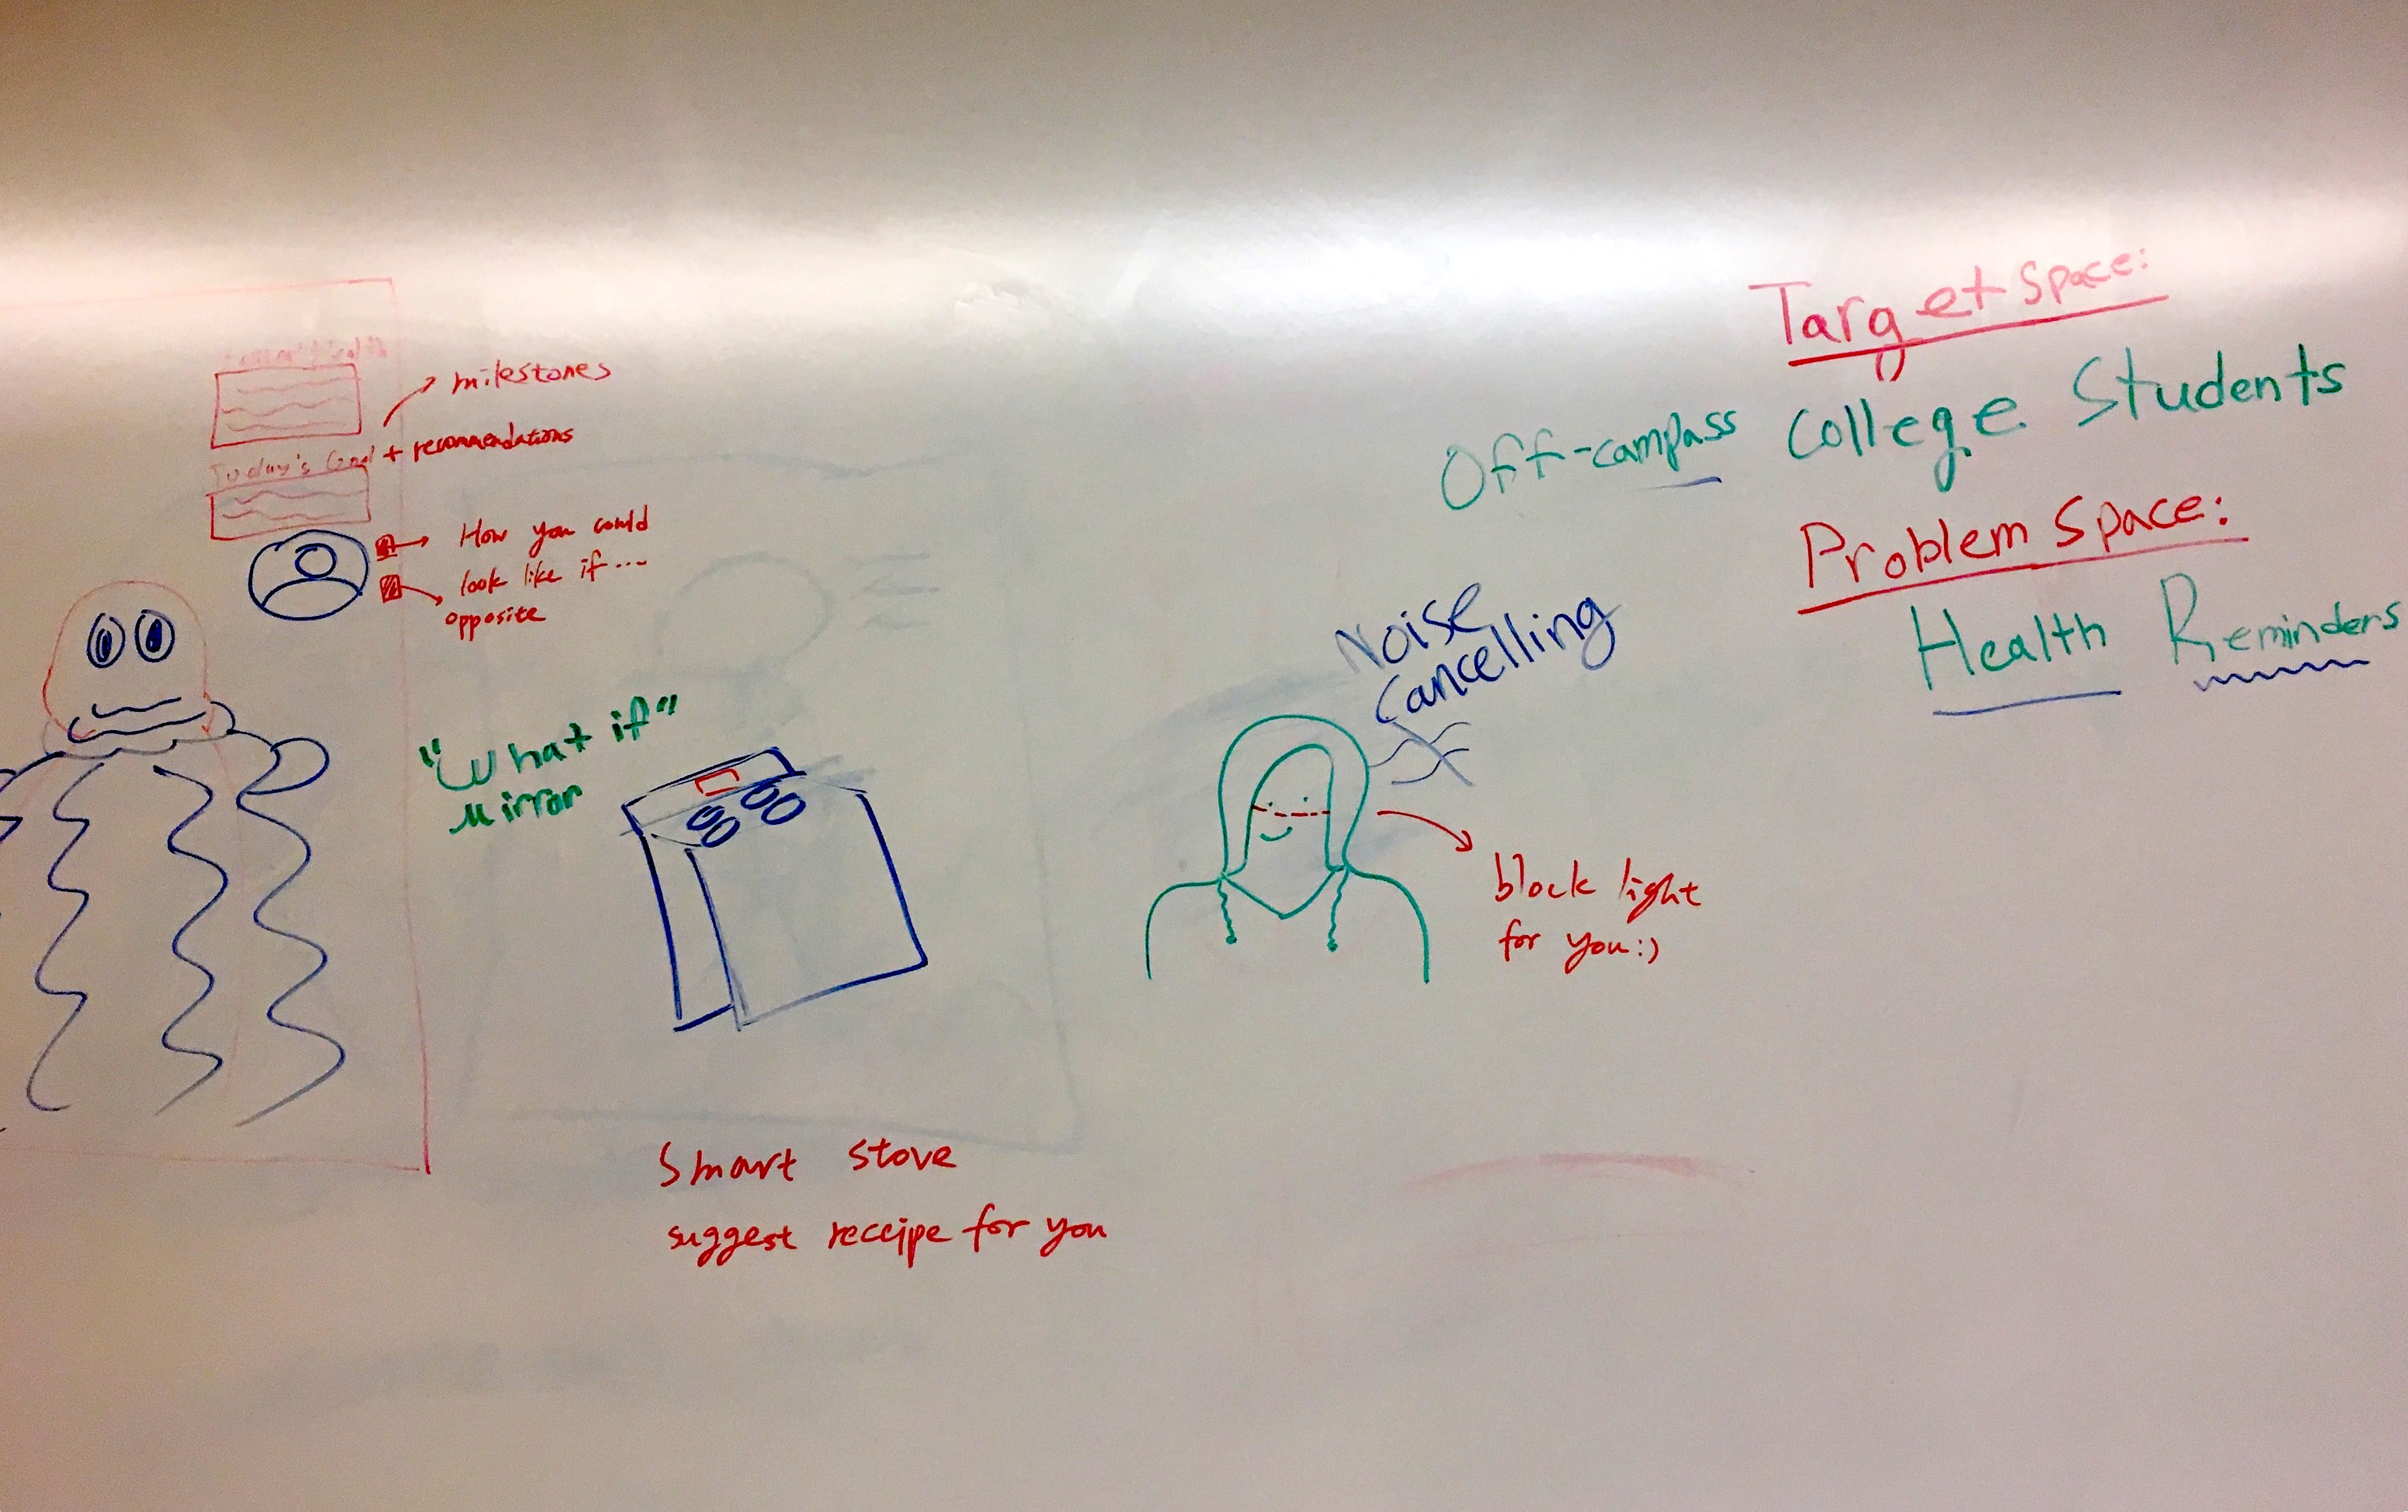 milestones
Today's Goal + recommendations
How you could
look like if ...
opposite
"What if"
Mirror
Smart stove
suggest receipe for you
Noise
Cancelling
block light
for you :)
Target Space:
Off-campass College Students
Problem Space:
Health Reminders